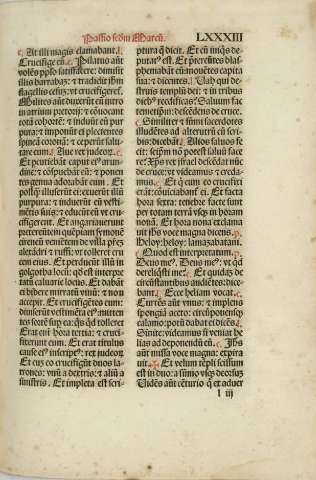 Passio scďm Marcū.
LXXXIII
C. At illi magis clamabant.
Crucifige eū. C. Pilatus aūt
volēs pplo satisfacere: dimisit
illis barrabaz: ⁊ tradidit jhm̄
flagellis cesuȝ: vt crucifigeret̄.
Milites aūt duxerūt eū intro
in atrium pretorij: ⁊ cōuocant
totā cohortē: ⁊ induūt eū pur
pura: ⁊ imponūt ei plectentes
spineā coronā: ⁊ ceperūt salu
tare eum. Aue rex judeorȝ.
Et pcutiebāt caput eiꝰ arun
dine: ⁊ cōspuebāt eū: ⁊ ponen
tes genua adorabāt eum. Et
postqȝ illuserūt ei: exuerūt illū
purpura: ⁊ induerūt eū vesti-
mētis suis: ⁊ educūt eū vt cru-
cifigerent. Et angariauerunt
pretereūtem quēpiam symonē
cireneū venientem de villa prēȝ
alexādri ⁊ ruffi: vt tolleret cru
cem eius. Et perducūt illū in
golgotha locū: qd̓ est interpre
tatū caluarie locus. Et dabāt
ei bibere mirratū vinū: ⁊ non
accepit. Et crucifigētes eum:
diuiserūt vestimēta eiꝰ: mitten
tes sortē sup ea: qs qd̓ tolleret
Erat aūt hora tertia: ⁊ cruci-
fixerunt eum. Et erat titulus
cause eiꝰ inscriptꝰ: rex judeorȝ
Et cū eo crucifigūt duos la-
trones: vnū a dextris: ⁊ aliū a
sinistris. Et impleta est scri-
ptura q̄ dicit. Et cū iniq̄s de-
putatꝰ est. Et p̄tereūtes blas-
phemabāt eū: mouētes capita
sua: ⁊ dicentes. Vah qui de-
struis templū dei: ⁊ in tribus
diebꝰ reedificas: Saluum fac
temetipsuȝ: descēdens de cruce.
C. Similiter ⁊ sūmi sacerdotes
illudētes ad alterutrū cū scri-
bis: dicebāt. Alios saluos fe
cit: seip̄m nō potest saluū face
re. Xp̄s rex israel descēdat nūc
de cruce: vt videamus: ⁊ creda-
mus. C. Et q̄ cum eo crucifixi
erāt: conuiciabant̄ ei. Et facta
hora sexta: tenebre facte sunt
per totam terrā vsqȝ in horam
nonā. Et hora nona exclama
uit jhs̄ voce magna dicens.
Heloy: heloy: lamazabatani.
C. Quod est interpretatum.
Deus meꝰ. Deus meꝰ: vt qd̓
dereliqsti me. C. Et quidaȝ de
circumstantibus audiētes: dice-
bant. Ecce heliam vocat. C.
Currēs aūt vnus: ⁊ implens
spongiā aceto: circūponensqȝ
calamo: potū dabat ei: dicēs.
Sinite: videamus si veniat he
lias ad deponendū eū. C. Jhs̄
aūt missa voce magna: expira
uit. Et velum tēpli scissum
est in duo: a sūmo vsqȝ deorsuȝ
Vidēs aūt cēturio q̄ ex aduer
l iij